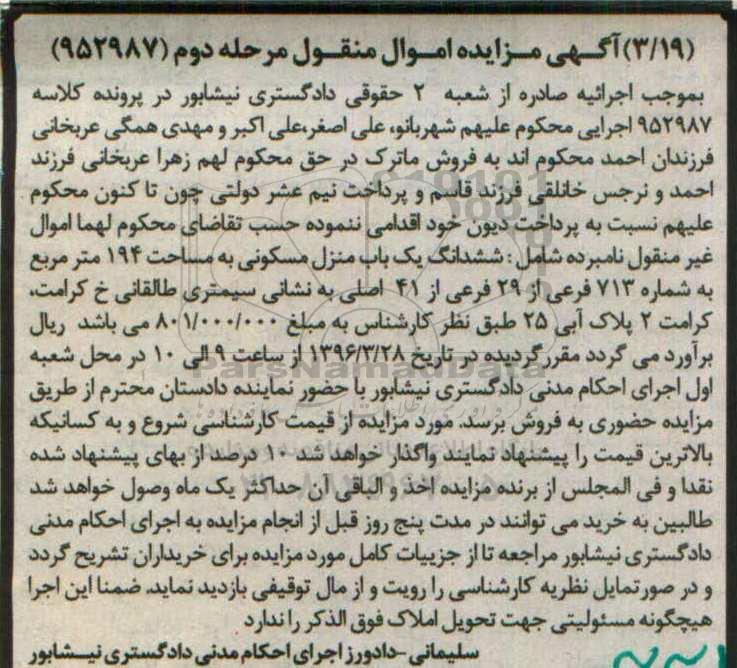 (۳/۱۹) آگهی مزایده اموال منقول مرحله دوم (۹۵۲۹۸۷)
بموجب اجرائیه صادره از شعبه ۲ حقوقی دادگستری نیشابور در پرونده کلاسه
۹۵۲۹۸۷ اجرایی محکوم علیهم شهربانو، علی اصغر،علی اکبر و مهدی همگی عربخانی
فرزندان احمد محکوم اند به فروش ماترک در حق محکوم لهم زهرا عربخانی فرزند
احمد و نرجس خانلقی فرزند قاسم و پرداخت نیم عشر دولتی چون تا کنون محکوم
علیهم نسبت به پرداخت دیون خود اقدامی ننموده حسب تقاضای محکوم لهما اموال
غیر منقول نامبرده شامل : ششدانگ یک باب منزل مسکونی به مساحت ۱۹۴ متر مربع
به شماره ۷۱۳ فرعی از ۲۹ فرعی از ۴۱ اصلی به نشانی سیمتری طالقانی خ کرامت،
کرامت ۲ پلاک آبی ۲۵ طبق نظر کارشناس به مبلغ ۸۰۱/۰۰۰/۰۰۰ می باشد ریال
برآورد می گردد مقرر گردیده در تاریخ ۱۳۹۶/۳/۲۸ از ساعت ۹ الی ۱۰ در محل شعبه
اول اجرای احکام مدنی دادگستری نیشابور با حضور نماینده دادستان محترم از طریق
مزایده حضوری به فروش برسد. مورد مزایده از قیمت کارشناسی شروع و به کسانیکه
بالاترین قیمت را پیشنهاد نمایند واگذار خواهد شد ۱۰ درصد از بهای پیشنهاد شده
نقدا و فی المجلس از برنده مزایده اخذ و الباقی آن حداکثر یک ماه وصول خواهد شد
طالبین به خرید می توانند در مدت پنج روز قبل از انجام مزایده به اجرای احکام مدنی
دادگستری نیشابور مراجعه تا از جزییات کامل مورد مزایده برای خریداران تشریح گردد
و در صورتمایل نظریه کارشناسی را رویت و از مال توقیفی بازدید نماید. ضمنا این اجرا
هیچگونه مسئولیتی جهت تحویل املاک فوق الذکر را ندارد
سلیمانی -دادورز اجرای احکام مدنی دادگستری نیشابور
ParsNamadData